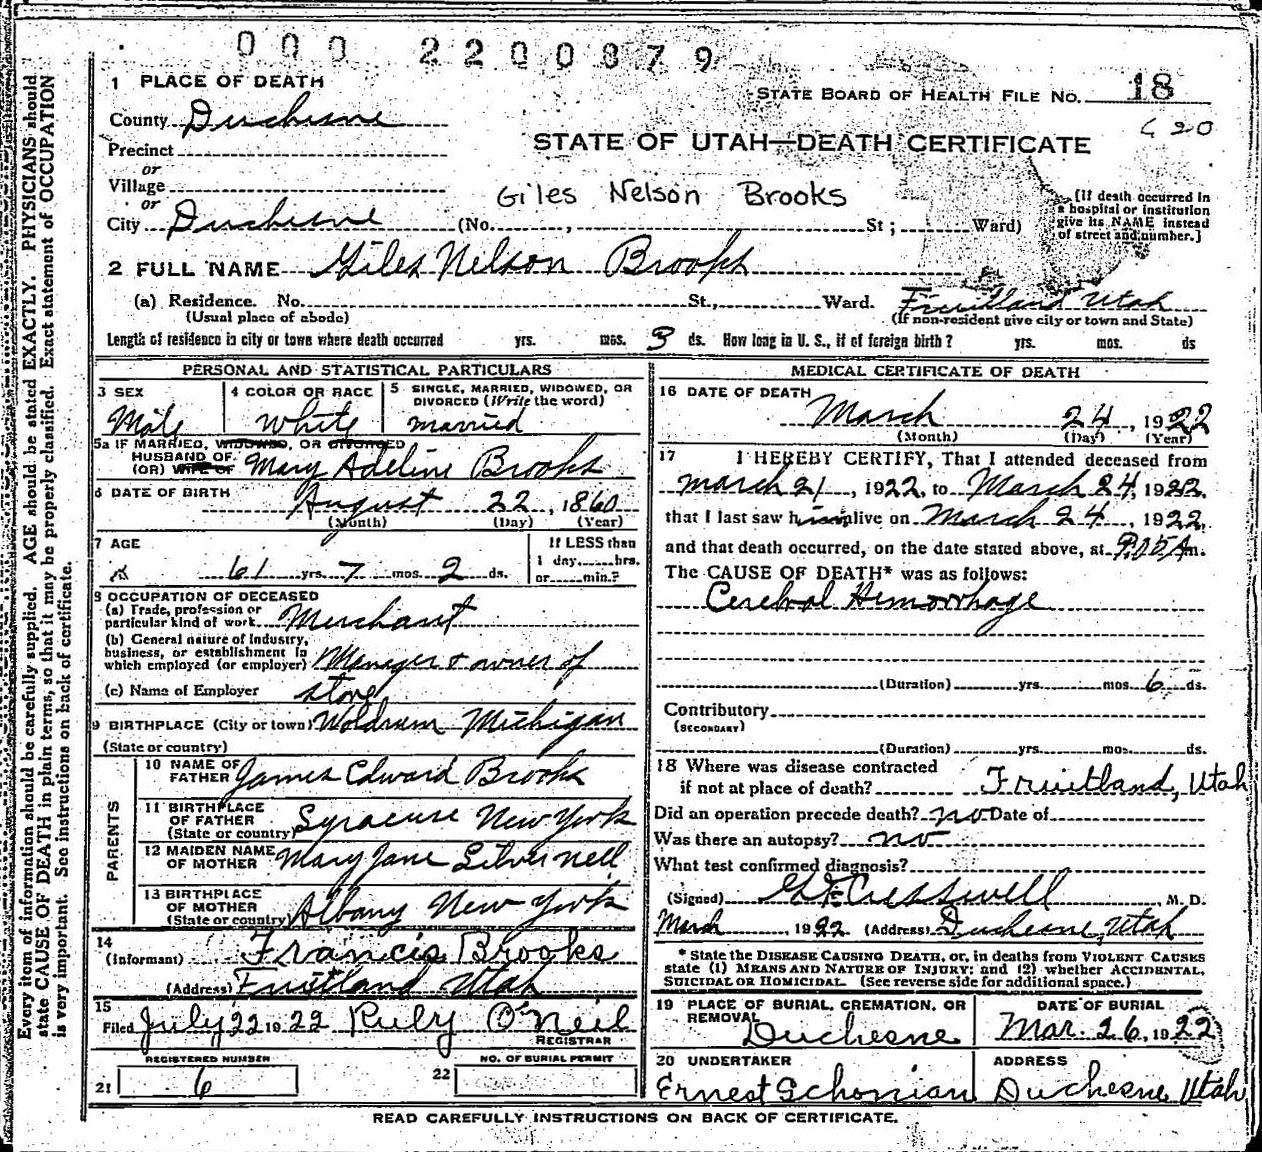 000 2200879
1 PLACE OF DEATH
STATE BOARD OF HEALTH FILE NO. 18
County Duchesne
C 20
STATE OF UTAH—DEATH CERTIFICATE
Precinct
or
Village
or
Giles Nelson Brooks
City Duchesne (No. , St ; Ward)
[If death occurred in
a hospital or institution
give its NAME instead
of street and number.]
2 FULL NAME Giles Nelson Brooks
(a) Residence. No. St., Ward. Fruitland Utah
(Usual place of abode) (If non-resident give city or town and State)
Length of residence in city or town where death occurred yrs. mos. 3 ds. How long in U. S., if of foreign birth? yrs. mos. ds
PERSONAL AND STATISTICAL PARTICULARS
3 SEX
Male
4 COLOR OR RACE
White
5 SINGLE, MARRIED, WIDOWED, OR
DIVORCED (Write the word)
married
5a IF MARRIED, WIDOWED, OR DIVORCED
HUSBAND OF
(OR) WIFE OF Mary Adeline Brooks
6 DATE OF BIRTH August 22, 1860
(Month) (Day) (Year)
7 AGE
61 yrs. 7 mos. 2 ds.
If LESS than
1 day, hrs.
or min.?
8 OCCUPATION OF DECEASED
(a) Trade, profession or
particular kind of work Merchant
(b) General nature of Industry,
business, or establishment in
which employed (or employer) Manager & owner of
(c) Name of Employer store
9 BIRTHPLACE (City or town) Woldrum Michigan
(State or country)
PARENTS
10 NAME OF
FATHER James Edward Brooks
11 BIRTHPLACE
OF FATHER
(State or country) Syracuse New York
12 MAIDEN NAME
OF MOTHER Mary Jane Silvernell
13 BIRTHPLACE
OF MOTHER
(State or country) Albany New York
14
(Informant) Francis Brooks
(Address) Fruitland Utah
15
Filed July 22 1922 Ruby O'Neil
REGISTRAR
REGISTERED NUMBER
21 6
NO. OF BURIAL PERMIT
22
MEDICAL CERTIFICATE OF DEATH
16 DATE OF DEATH
March 24, 1922
(Month) (Day) (Year)
17 I HEREBY CERTIFY, That I attended deceased from
March 21, 1922, to March 24, 1922,
that I last saw him alive on March 24, 1922,
and that death occurred, on the date stated above, at m.
The CAUSE OF DEATH* was as follows:
Cerebral Hemorrhage
(Duration) yrs. mos. 6 ds.
Contributory
(SECONDARY)
(Duration) yrs. mos. ds.
18 Where was disease contracted
if not at place of death? Fruitland, Utah
Did an operation precede death? no Date of
Was there an autopsy? no
What test confirmed diagnosis?
(Signed) Cresswell, M. D.
March, 1922 (Address) Duchesne, Utah
* State the DISEASE CAUSING DEATH, or, in deaths from VIOLENT CAUSES
state (1) MEANS AND NATURE OF INJURY; and (2) whether ACCIDENTAL,
SUICIDAL OR HOMICIDAL. (See reverse side for additional space.)
19 PLACE OF BURIAL, CREMATION, OR
REMOVAL
Duchesne
DATE OF BURIAL
Mar. 26, 1922
20 UNDERTAKER
Ernest Schonian
ADDRESS
Duchesne Utah
READ CAREFULLY INSTRUCTIONS ON BACK OF CERTIFICATE.
Every item of information should be carefully supplied. AGE should be stated EXACTLY. PHYSICIANS should
state CAUSE OF DEATH in plain terms, so that it may be properly classified. Exact statement of OCCUPATION
is very important. See instructions on back of certificate.